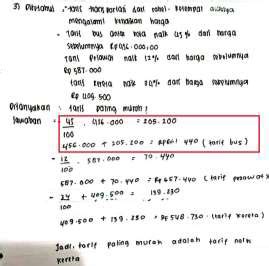 3) Diketahui : - tarif transportasi dari
mengalami kenaikan harga
- Tarif bus antar kota naik 45% dari harga
sebelumnya Rp 456.000,00
Tarif Pesawat naik 12% dari harga sebelumnya
Rp 587.000
tarif kereta naik 34% dari harga sebelumnya
Rp 409.500
Ditanyakan : tarif paling murah !
Jawaban = 45/100 . 456.000 = 205.200
456.000 + 205.200 = 440 (tarif bus)
- 12/100 . 587.000 = 70.440
587.000 + 70.440 = Rp 657.440 (tarif pesawat)
- 34/100 + 409.500 = 139.230
409.500 + 139.230 = Rp 548.730. (tarif kereta)
Jadi, tarif paling murah adalah tarif naik
kereta